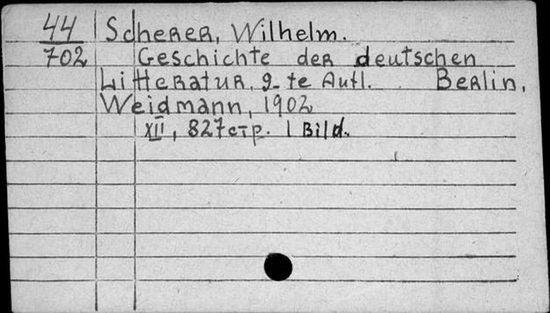 44 Scherer, Wilhelm.
702 Geschichte der deutschen
Litteratur. 9-te Aufl. Berlin,
Weidmann, 1902
XII, 827 стр. 1 Bild.